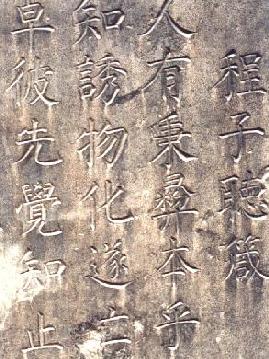 程子聴箴
人有秉彝本乎
知誘物化遂亡
卓彼先覺知止